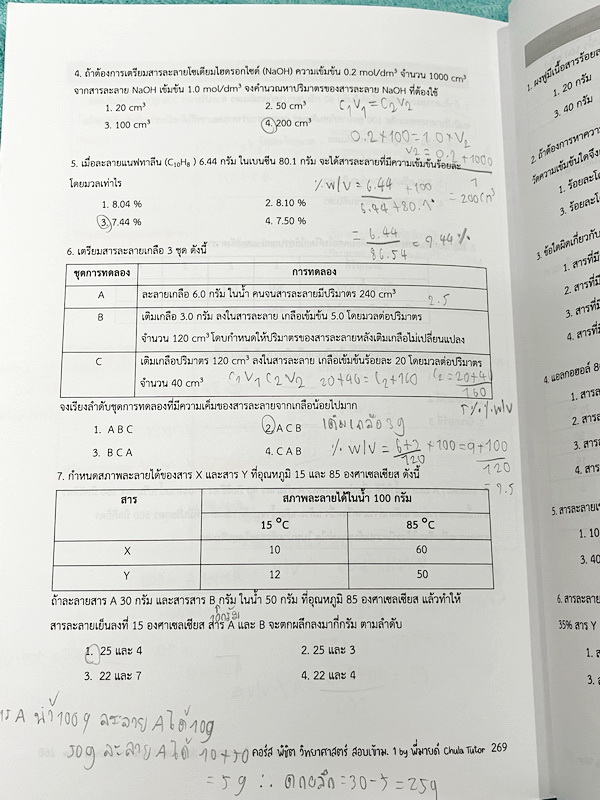 4. ถ้าต้องการเตรียมสารละลายโซเดียมไฮดรอกไซด์ (NaOH) ความเข้มข้น 0.2 mol/dm³ จำนวน 1000 cm³
จากสารละลาย NaOH เข้มข้น 1.0 mol/dm³ จงคำนวณหาปริมาตรของสารละลาย NaOH ที่ต้องใช้
1. 20 cm³ 2. 50 cm³
3. 100 cm³ 4. 200 cm³
C₁V₁ = C₂V₂
5. เมื่อละลายแนฟทาลีน (C₁₀H₈ ) 6.44 กรัม ในเบนซีน 80.1 กรัม จะได้สารละลายที่มีความเข้มข้นร้อยละ
โดยมวลเท่าไร
1. 8.04 % 2. 8.10 %
3. 7.44 % 4. 7.50 %
= 200 cm³
= 6.44
86.54
6. เตรียมสารละลายเกลือ 3 ชุด ดังนี้
ชุดการทดลอง การทดลอง
A ละลายเกลือ 6.0 กรัม ในน้ำ คนจนสารละลายมีปริมาตร 240 cm³ 2.5
B เติมเกลือ 3.0 กรัม ลงในสารละลาย เกลือเข้มข้น 5.0 โดยมวลต่อปริมาตร
จำนวน 120 cm³ โดยกำหนดให้ปริมาตรของสารละลายหลังเติมเกลือไม่เปลี่ยนแปลง
C เติมเกลือปริมาตร 120 cm³ ลงในสารละลาย เกลือเข้มข้นร้อยละ 20 โดยมวลต่อปริมาตร
จำนวน 40 cm³ C₁V₁ C₂V₂
จงเรียงลำดับชุดการทดลองที่มีความเค็มของสารละลายจากเกลือน้อยไปมาก
1. A B C 2. A C B
3. B C A 4. C A B
เติมเกลือ 3g
7. กำหนดสภาพละลายได้ของสาร X และสาร Y ที่อุณหภูมิ 15 และ 85 องศาเซลเซียส ดังนี้
สาร สภาพละลายได้ในน้ำ 100 กรัม
15 °C 85 °C
X 10 60
Y 12 50
ถ้าละลายสาร A 30 กรัม และสารสาร B กรัม ในน้ำ 50 กรัม ที่อุณหภูมิ 85 องศาเซลเซียส แล้วทำให้
10กรัม
สารละลายเย็นลงที่ 15 องศาเซลเซียส สาร A และ B จะตกผลึกลงมากี่กรัม ตามลำดับ
1. 25 และ 4 2. 25 และ 3
3. 22 และ 7 4. 22 และ 4
A น้ำ 100g ละลาย A ได้ 10g
50g ละลาย A ได้
= 5g ∴ ตกผลึก = 30-5 = 25g
คอร์ส พิชิต วิทยาศาสตร์ สอบเข้าม. 1 by พี่มายด์ Chula Tutor 269
1. 20 กรัม
3. 40 กรัม